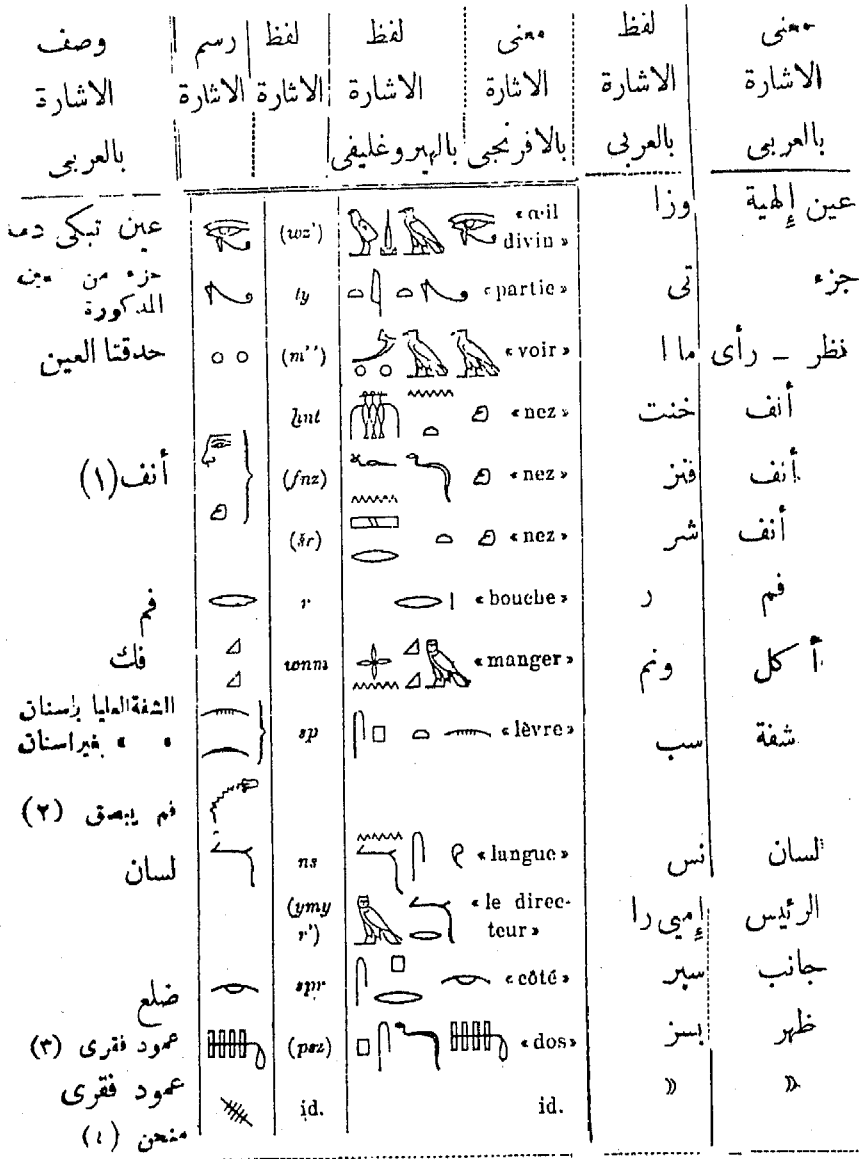 معنى الاشارة بالعربى | لفظ الاشارة بالعربى | معنى الاشارة بالافرنجى | لفظ الاشارة بالهيروغليفى | لفظ الاشارة | رسم الاشارة | وصف الاشارة بالعربى
عين إلهية | وزا | «œil divin» | (wz') | عين تبكى
جزء | تى | «partie» | ty | جزء من عين المذكورة
نظر – رأى | ما ا | «voir» | (m'') | حدقتا العين
أنف | خنت | «nez» | ḫnt
أنف | فنز | «nez» | (fnz) | أنف (١)
أنف | شر | «nez» | (šr)
فم | ر | «bouche» | r | فم
أكل | ونم | «manger» | wnm | فك
شفة | سب | «lèvre» | sp | الشفة العليا بإسنان
» » بغير اسنان
فم يبصق (٢)
لسان | نس | «langue» | ns | لسان
الرئيس | إميى را | «le direc-teur» | (ymy r')
جانب | سبر | «côté» | spr | ضلع
ظهر | بسز | «dos» | (psz) | عمود فقرى (٣)
» | » | id. | id. | عمود فقرى منحن (٤)